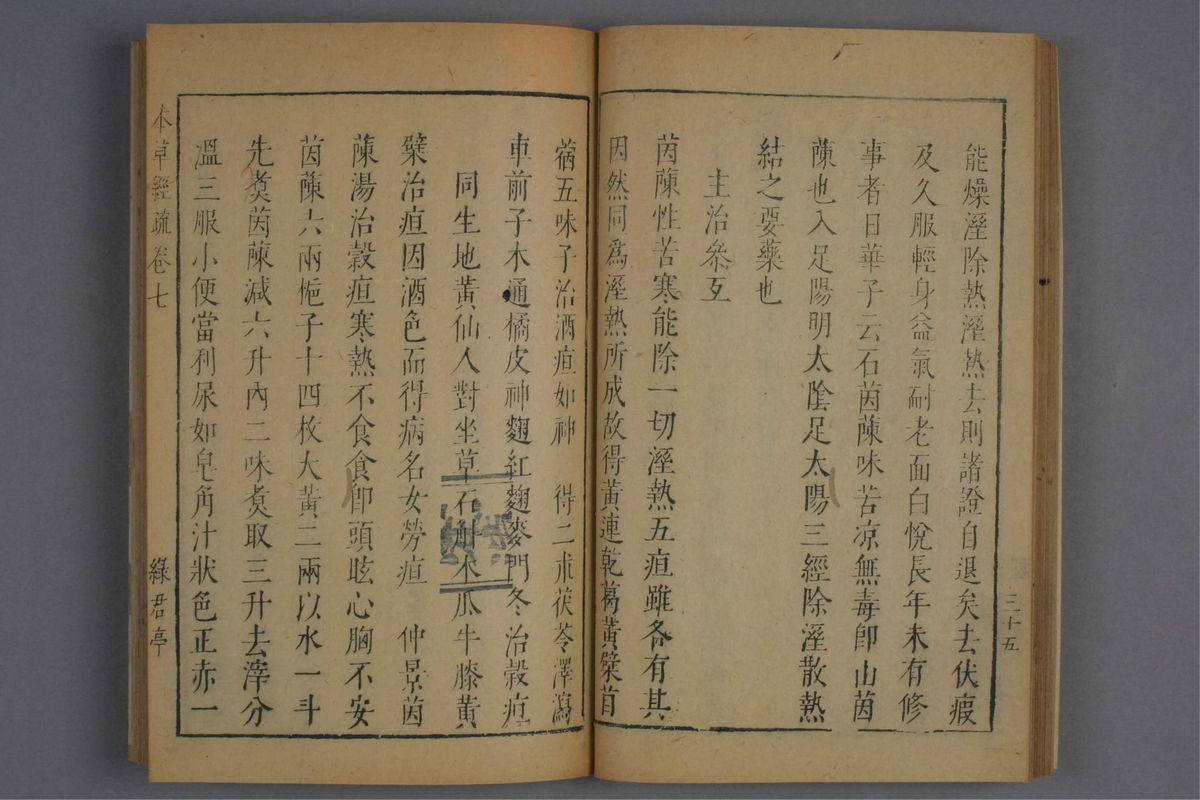 能燥溼除熱溼熱去則諸證自退矣去伏瘕
及久服輕身益氣耐老面白悅長年未有修
事者日華子云石茵蔯味苦凉無毒卽山茵
蔯也入足陽明太陰足太陽三經除溼散熱
結之要藥也
主治叅互
茵蔯性苦寒能除一切溼熱五疸雖各有其
因然同爲溼熱所成故得黃連乾葛黃檗苜
蓿五味子治酒疸如神 得二朮茯苓澤瀉
車前子木通橘皮神麴紅麴麥門冬治穀疸
同生地黃仙人對坐草石斛木瓜牛膝黃
檗治疸因酒色而得病名女勞疸 仲景茵
蔯湯治穀疸寒熱不食食卽頭眩心胸不安
茵蔯六兩梔子十四枚大黃二兩以水一斗
先煑茵蔯減六升內二味煑取三升去滓分
溫三服小便當利尿如皂角汁狀色正赤一
本草經疏卷七
綠君亭
三十五